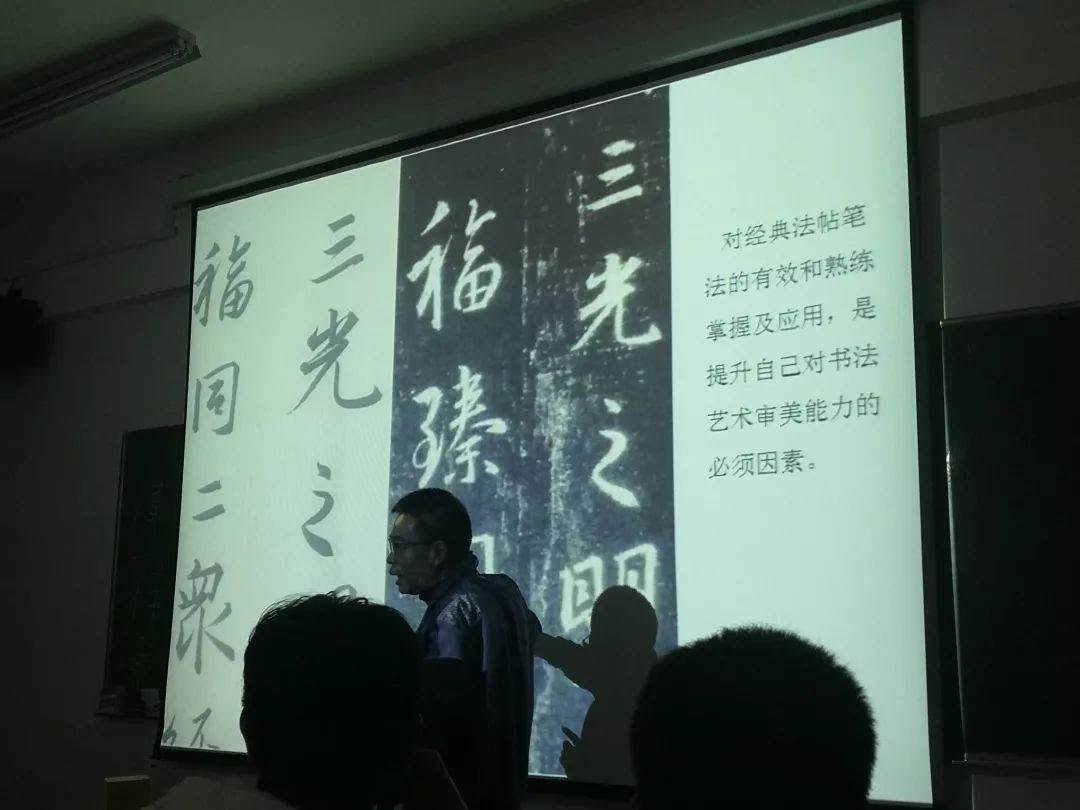 三光之
福同二眾
三光之明
福臻
对经典法帖笔
法的有效和熟练
掌握及应用，是
提升自己对书法
艺术审美能力的
必须因素。